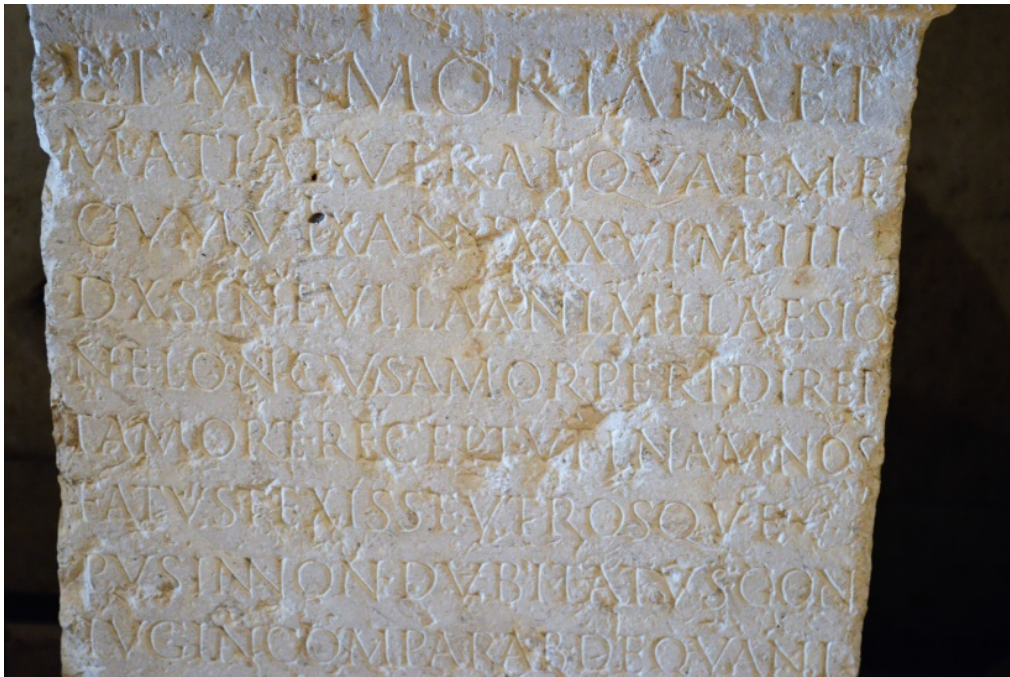 ET MEMORIAE AET
MATIAE VERAE QVAE ME
CVM VIXANN XXXVI M III
D X SINE VLLA ANIMI LAESIO
NE LONGVS AMOR PERIDI REP
T AMOR ERECEPT VTINAM NOS
FATVS TEXISSE VTROSQVE
PVSINNON DVBITATVS CON
IVG INCOMPARAB DE QVA NI